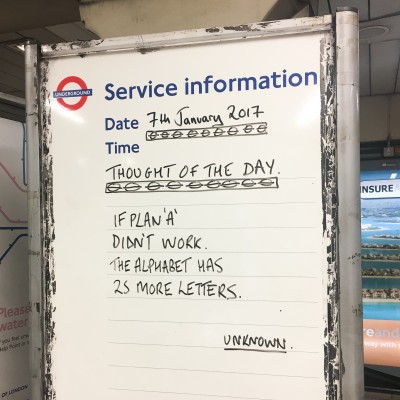 UNDERGROUND
Service information
Date 7th January 2017
Time
THOUGHT OF THE DAY.
IF PLAN 'A'
DIDN'T WORK.
THE ALPHABET HAS
25 MORE LETTERS.
UNKNOWN.
INSURE
Please
water
OF LONDON